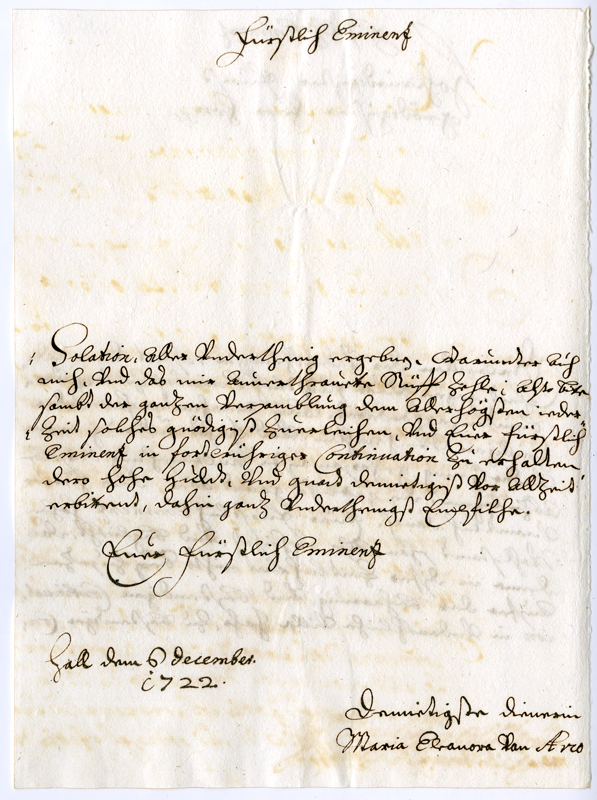 Fürstlich Eminenz
Solation, aller Underthenig ergeben, darundter auch
mich, und das mir anverthrauete Stüfft zehle; ich bitte
sambt der ganzen Versamblung dem Allerhögsten ieder
Zeit solches gnädigist zuverleichen, und Euer Fürstlich
Eminenz in fortwühriger Continuation zu erhalten
dero hohe Huldt, und gnad demietigist vor allzeit
erbittent, dahin ganz underthenigst Empfilhe.
Euer Fürstlich Eminenz
Hall dem 6 december.
1722.
Demietigste dienerin
Maria Eleanora Von Arco